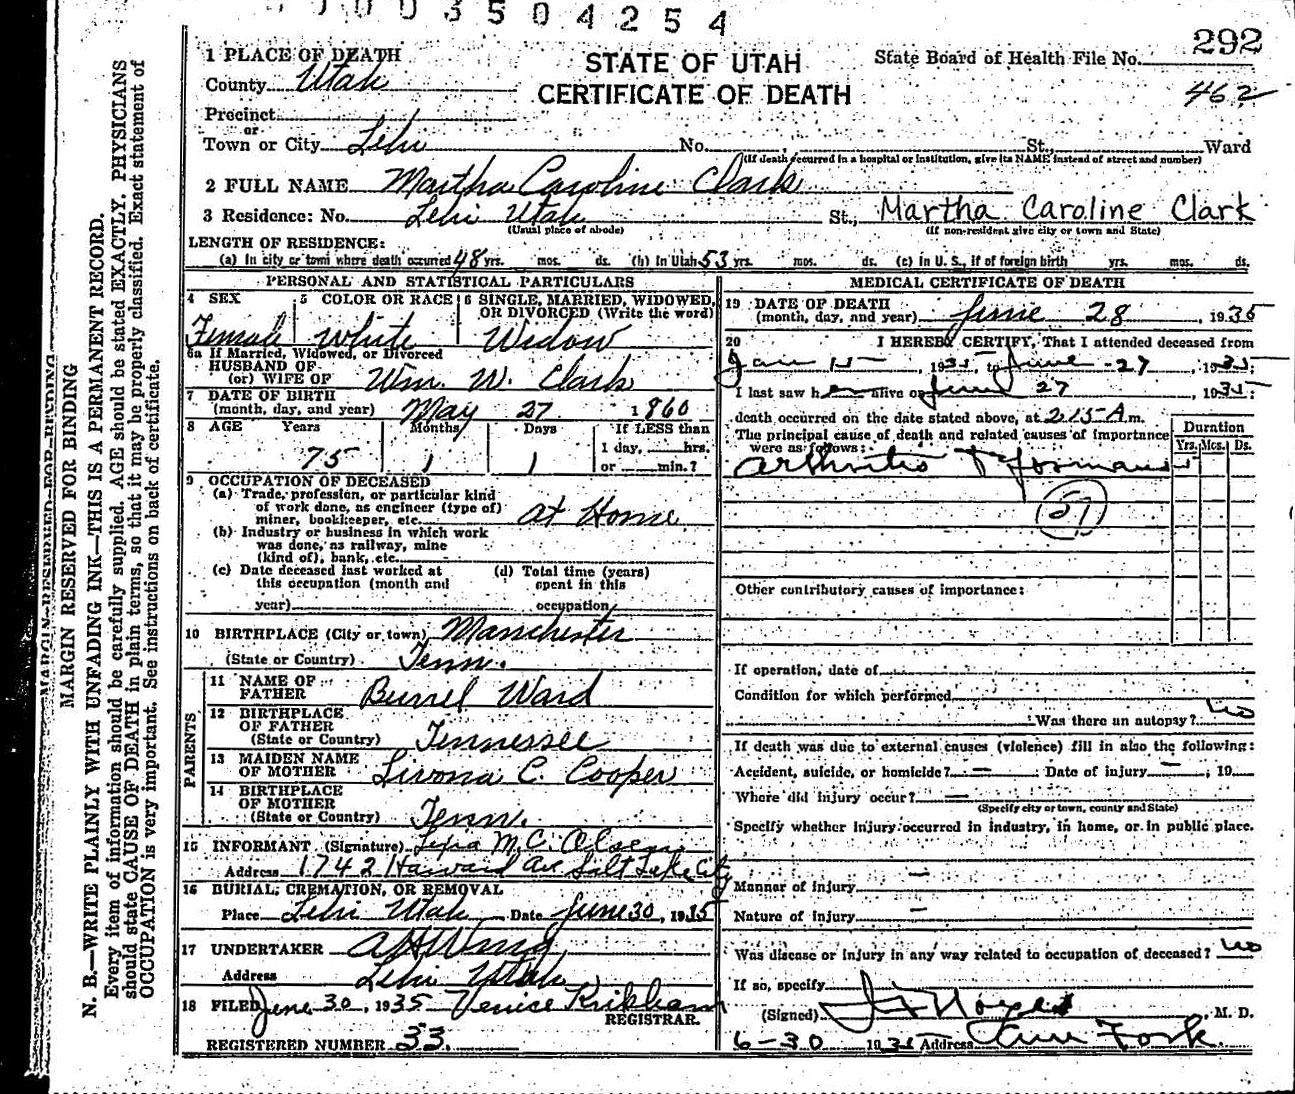 0003504254
292
1 PLACE OF DEATH
STATE OF UTAH
State Board of Health File No.
County Utah
CERTIFICATE OF DEATH
462
Precinct
or
Town or City Lehi No. St., Ward
(If death occurred in a hospital or institution, give its NAME instead of street and number)
2 FULL NAME Martha Caroline Clark
3 Residence: No. Lehi Utah St., Martha Caroline Clark
(Usual place of abode) (If non-resident give city or town and State)
LENGTH OF RESIDENCE:
(a) In city or town where death occurred 48 yrs. mos. ds. (b) In Utah 53 yrs. mos. ds. (c) in U. S., if of foreign birth yrs. mos. ds.
PERSONAL AND STATISTICAL PARTICULARS
4 SEX 5 COLOR OR RACE 6 SINGLE, MARRIED, WIDOWED,
OR DIVORCED (Write the word)
Female White Widow
6a If Married, Widowed, or Divorced
HUSBAND OF
(or) WIFE OF Wm. W. Clark
7 DATE OF BIRTH
(month, day, and year) May 27 1860
8 AGE Years Months Days If LESS than
1 day, hrs.
75 1 1 or min.?
9 OCCUPATION OF DECEASED
(a) Trade, profession, or particular kind
of work done, as engineer (type of)
miner, bookkeeper, etc. at Home
(b) Industry or business in which work
was done, as railway, mine
(kind of), bank, etc.
(c) Date deceased last worked at (d) Total time (years)
this occupation (month and spent in this
year) occupation
10 BIRTHPLACE (City or town) Manchester
(State or Country) Tenn.
PARENTS
11 NAME OF
FATHER Burrel Ward
12 BIRTHPLACE
OF FATHER
(State or Country) Tennessee
13 MAIDEN NAME
OF MOTHER Livona C. Cooper
14 BIRTHPLACE
OF MOTHER
(State or Country) Tenn.
15 INFORMANT (Signature) M. C. Olsen
Address 1742 Harvard Ave Salt Lake City
16 BURIAL, CREMATION, OR REMOVAL
Place Lehi Utah Date June 30, 1935
17 UNDERTAKER A H Wing
Address Lehi Utah
18 FILED June 30, 1935 Venice Kirkham
REGISTRAR.
REGISTERED NUMBER 33.
MEDICAL CERTIFICATE OF DEATH
19 DATE OF DEATH
(month, day, and year) June 28, 1935
20 I HEREBY CERTIFY, That I attended deceased from
Jan 15, 1935, to June 27, 1935;
I last saw her alive on June 27, 1935;
death occurred on the date stated above, at 2:15 A m.
The principal cause of death and related causes of importance
were as follows:
Duration
Yrs. Mos. Ds.
Arthritis Deformans
57
Other contributory causes of importance:
If operation, date of
Condition for which performed
Was there an autopsy? no
If death was due to external causes (violence) fill in also the following:
Accident, suicide, or homicide? — Date of injury —, 19
Where did injury occur? —
(Specify city or town, county and State)
Specify whether injury occurred in industry, in home, or in public place.
Manner of injury —
Nature of injury —
Was disease or injury in any way related to occupation of deceased? no
If so, specify
(Signed) Noyes, M. D.
6-30 1935 Address Am Fork
MARGIN RESERVED FOR BINDING
N. B.—WRITE PLAINLY WITH UNFADING INK—THIS IS A PERMANENT RECORD.
Every item of information should be carefully supplied. AGE should be stated EXACTLY. PHYSICIANS
should state CAUSE OF DEATH in plain terms, so that it may be properly classified. Exact statement of
OCCUPATION is very important. See instructions on back of certificate.